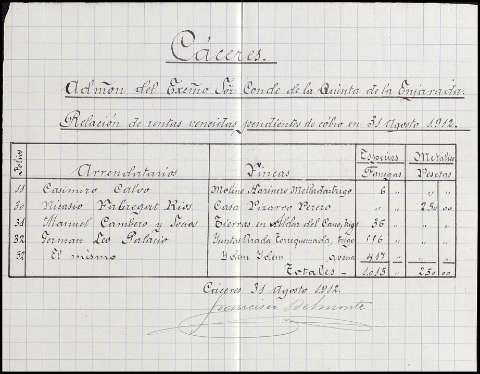 Cáceres.
Admón del Excmo Sor. Conde de la Quinta de la Enjarada.
Relación de rentas vencidas pendientes de cobro en 31 Agosto 1912.
Folios Arrendatarios Fincas Especies Fanegas Metalico Pesetas
Casimiro Calvo Molino Harinero trigo 6 " " "
30 Nicasio Ríos Casa Pizarro Perero " " 250 00
31 Manuel Cambero y Aldea del Cano, trigo 36 " " "
32 German Leo Palacio Torrequemada, trigo " " "
32 El mismo Ydem Ydem avena 417 " " "
Totales — " 250 00
Cáceres 31 Agosto 1912.
Francisco Belmonte